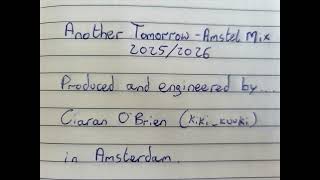 Another Tomorrow - Amstel Mix
2025/2026
Produced and engineered by...
Ciaran O'Brien (kiki_kuuki)
in Amsterdam.